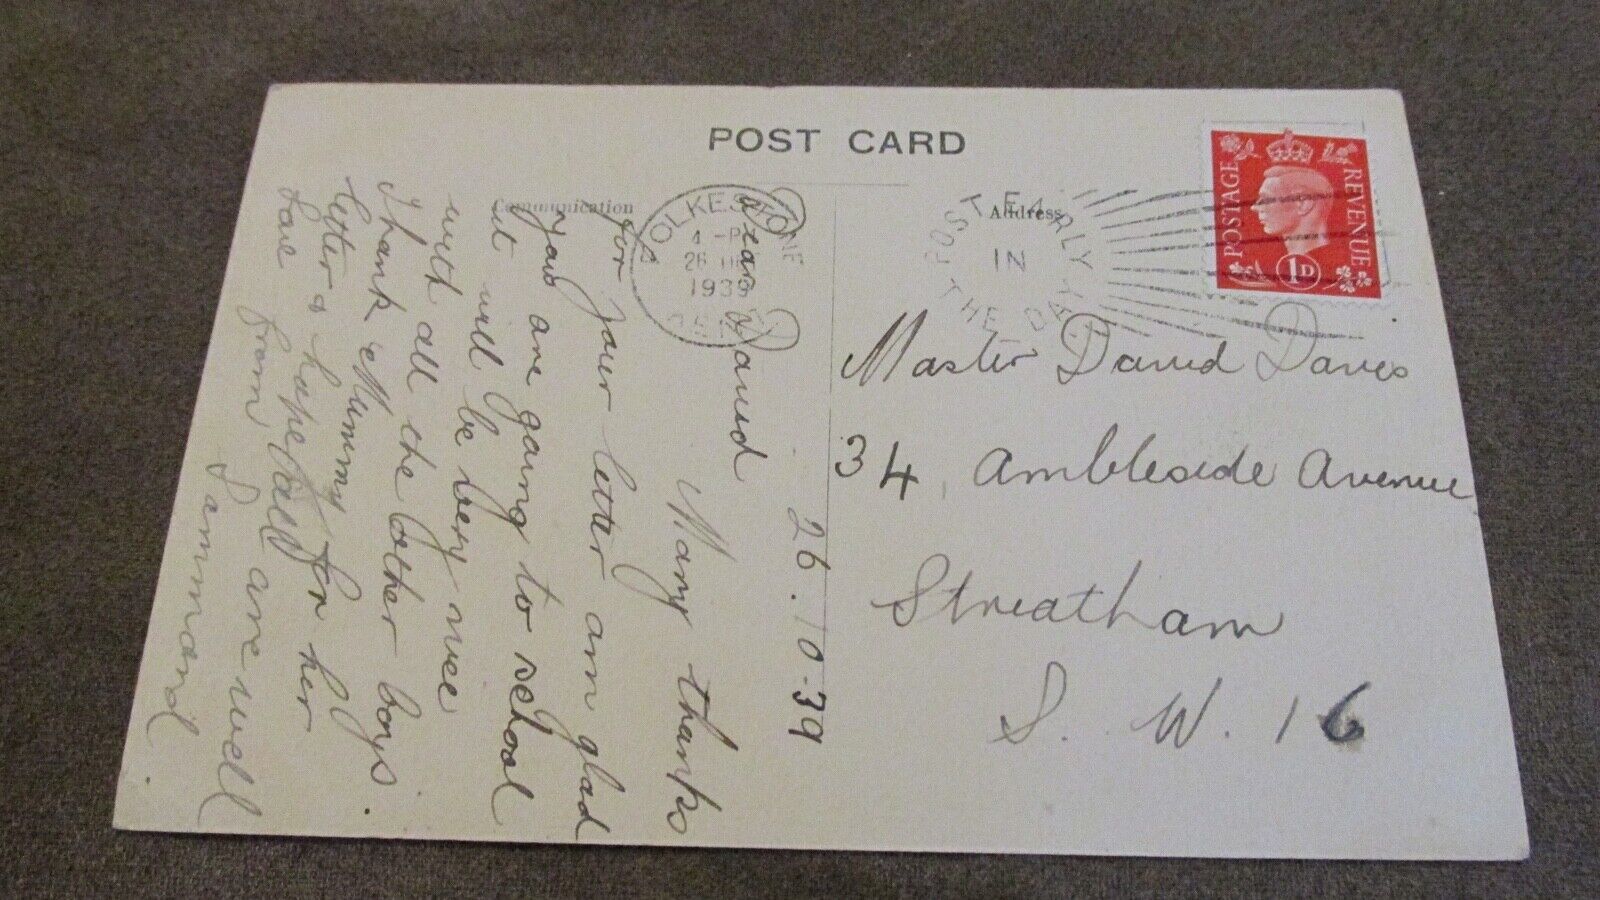 POST CARD
Communication
Address
FOLKESTONE
4 - P
26 OC
1939
KENT
POST EARLY
IN
THE DAY
POSTAGE
REVENUE
1D
Master David Davies
34, Ambleside Avenue
Streatham
S. W. 16
26.10-39
Dear David
Many thanks
for your letter am glad
you are going to school
it will be very nice
with all the other boys.
Thank Mummy for her
letter & hope all are well
Love from